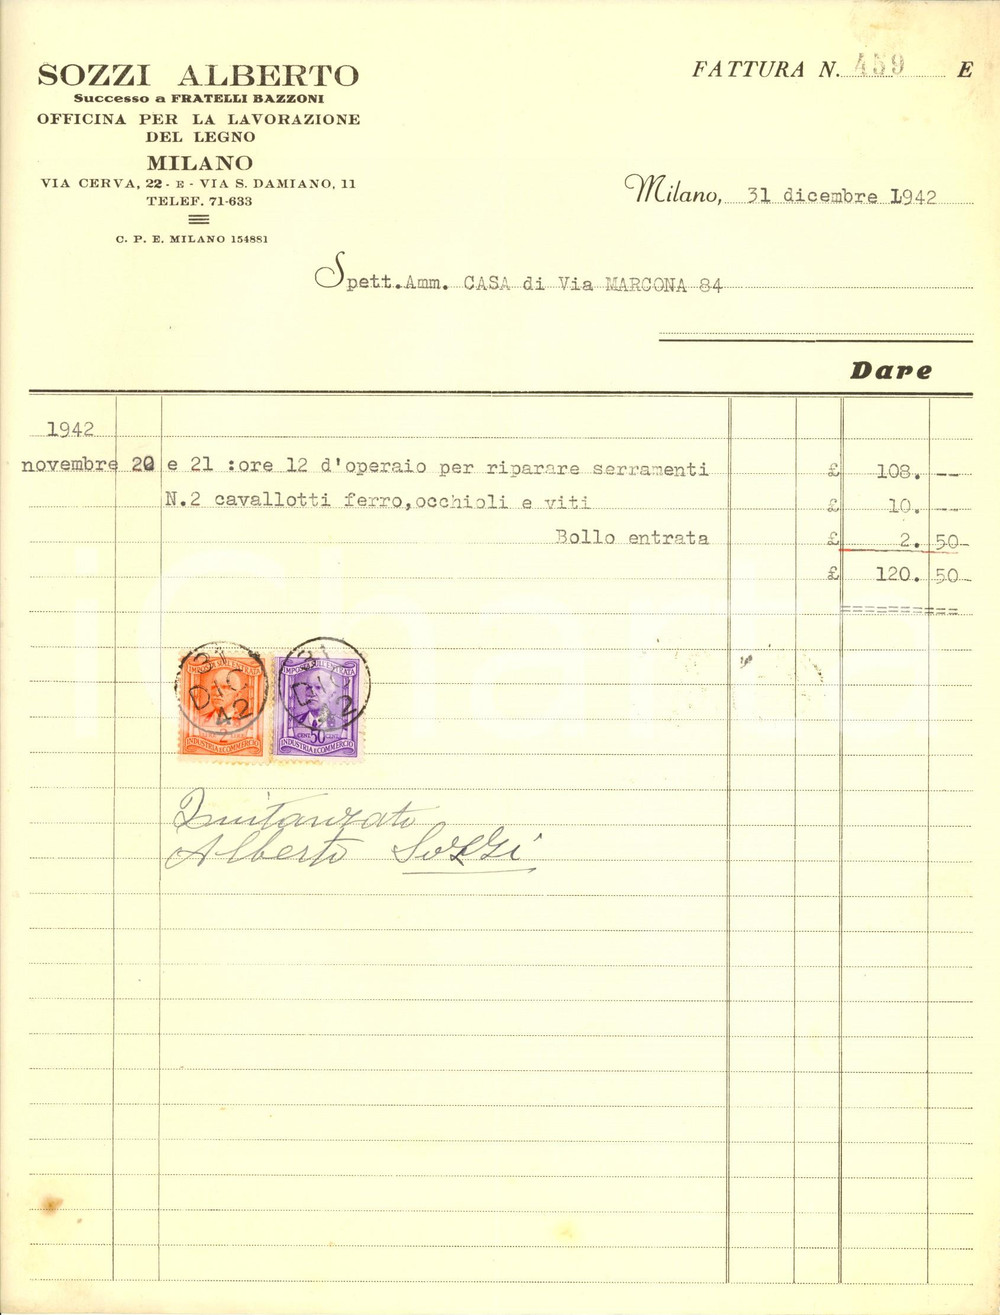 SOZZI ALBERTO
Successo a FRATELLI BAZZONI
OFFICINA PER LA LAVORAZIONE
DEL LEGNO
MILANO
VIA CERVA, 22 - E - VIA S. DAMIANO, 11
TELEF. 71-633
C. P. E. MILANO 154881
FATTURA N. 459 E
Milano, 31 dicembre 1942
Spett.Amm. CASA di Via MARCONA 84
Dare
1942
novembre 20 e 21 :ore 12 d'operaio per riparare serramenti £ 108. --
N.2 cavallotti ferro,occhioli e viti £ 10. --
Bollo entrata £ 2. 50
£ 120. 50
==========
IMPOSTA SULL'ENTRATA
31
DIC
42
2
INDUSTRIA E COMMERCIO
IMPOSTA SULL'ENTRATA
31
DIC
42
CENT 50
INDUSTRIA E COMMERCIO
Quitanzato
Alberto Sozzi